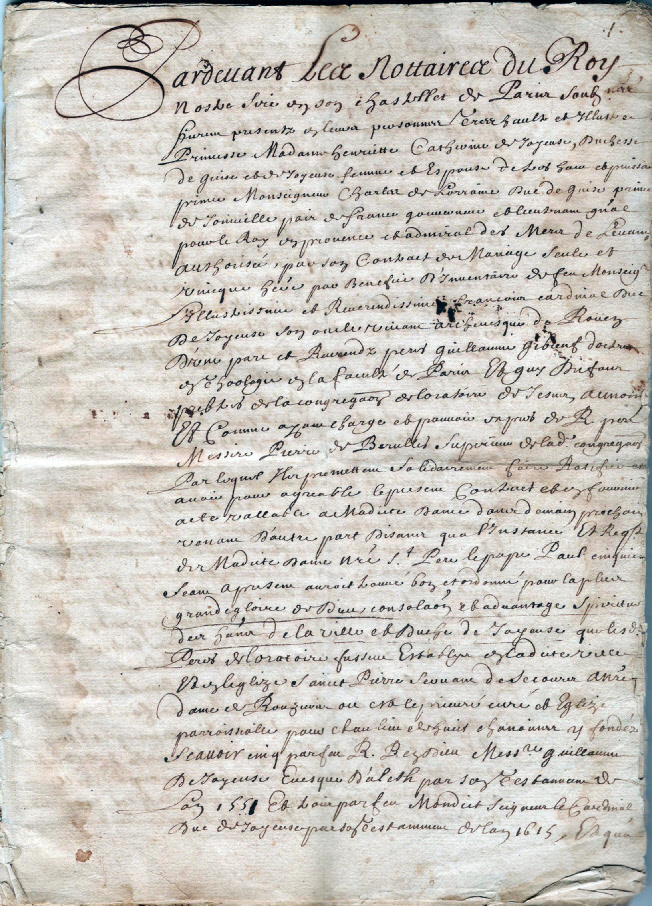 1.
Pardevant Les Nottaires du Roy
Nostre Sire en son Chastellet de Paris Soubz nés
furent presentz en leurs personnes Tres hault et Illustre
Princesse Madame Henriette Catherine de Joyeuse, Duchesse
de Guise et de Joyeuse femme et Espouse de tres hau et puissan
prince Monseigneur Charles de Lorraine Duc de Guise prince
de Joinville pair de france gouverneur et lieutenant gñal
pour le Roy en provence et admiral des Mers de Levant
Authorisée, par son Contract de Mariage Seule et
unicque herē par Benefice D'Inventaire de feu Monseigr
Illustrissime et Reverendissime francois cardinal Duc
De Joyeuse Son oncle vivant Archevesque de Rouen
D'une part et Reverendz peres guillaume gibieuf docteur
en Theologie en la faculté de Paris Et guy
de la congregaon de loratoire de Jesus, au nom
Et Comme ayans charge et pouvoir expres de R. pere
Messire Pierre de Berulles Superieur de lad. congregaon
Par lequel Ilz promettent Solidairement faire Ratiffier
avoir pour agreable le present Contract et en fournir
acte vallable a Madite Dame dans demain prochain
venant D'autre part Disans que a l'Instance Et Reqte
de Madite Dame nrē St Pere le pape Paul cinquie
Seant a present auroit trouvé bon et ordonné pour la plus
grande gloire de Dieu, consolaon et advantage Spirituel
des hāns de la ville et Duche de Joyeuse que lesd.
Peres de loratoire fussent Establys en ladite ville
Et en leglize Sainct Pierre de
dame de ou est le prieuré curé et Eglize
parroishialle pour et au lieu de huit chanoines y fondéz
Scavoir cinq par feu R. Messre guillaume
De Joyeuse Evesque D'Aleth par son Testament de
Lan 1551 Et trois par feu Mondit Seigneur le Cardinal
Duc de Joyeuse par son Testamment de lan 1615, Et que